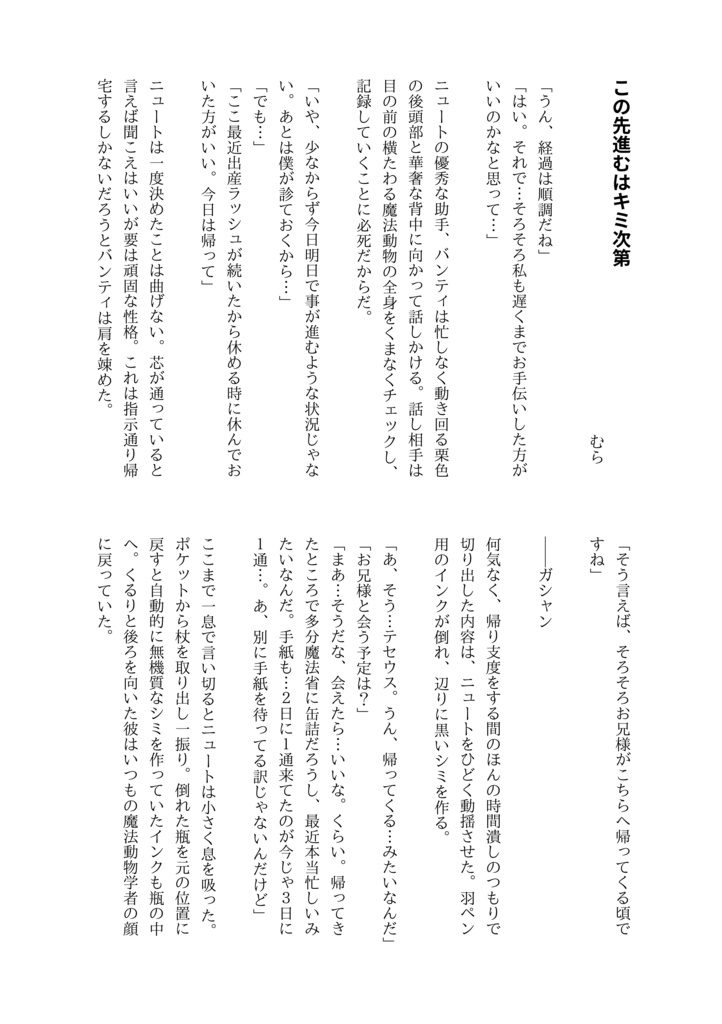 この先進むはキミ次第
むら
「うん、経過は順調だね」
「はい。それで…そろそろ私も遅くまでお手伝いした方が
いいのかなと思って…」
ニュートの優秀な助手、バンティは忙しなく動き回る栗色
の後頭部と華奢な背中に向かって話しかける。話し相手は
目の前の横たわる魔法動物の全身をくまなくチェックし、
記録していくことに必死だからだ。
「いや、少なからず今日明日で事が進むような状況じゃな
い。あとは僕が診ておくから…」
「でも…」
「ここ最近出産ラッシュが続いたから休める時に休んでお
いた方がいい。今日は帰って」
ニュートは一度決めたことは曲げない。芯が通っていると
言えば聞こえはいいが要は頑固な性格。これは指示通り帰
宅するしかないだろうとバンティは肩を竦めた。
「そう言えば、そろそろお兄様がこちらへ帰ってくる頃で
すね」
――ガシャン
何気なく、帰り支度をする間のほんの時間潰しのつもりで
切り出した内容は、ニュートをひどく動揺させた。羽ペン
用のインクが倒れ、辺りに黒いシミを作る。
「あ、そう…テセウス。うん、帰ってくる…みたいなんだ」
「お兄様と会う予定は？」
「まあ…そうだな、会えたら…いいな。くらい。帰ってき
たところで多分魔法省に缶詰だろうし、最近本当忙しいみ
たいなんだ。手紙も…２日に１通来てたのが今じゃ３日に
１通…。あ、別に手紙を待ってる訳じゃないんだけど」
ここまで一息で言い切るとニュートは小さく息を吸った。
ポケットから杖を取り出し一振り。倒れた瓶を元の位置に
戻すと自動的に無機質なシミを作っていたインクも瓶の中
へ。くるりと後ろを向いた彼はいつもの魔法動物学者の顔
に戻っていた。